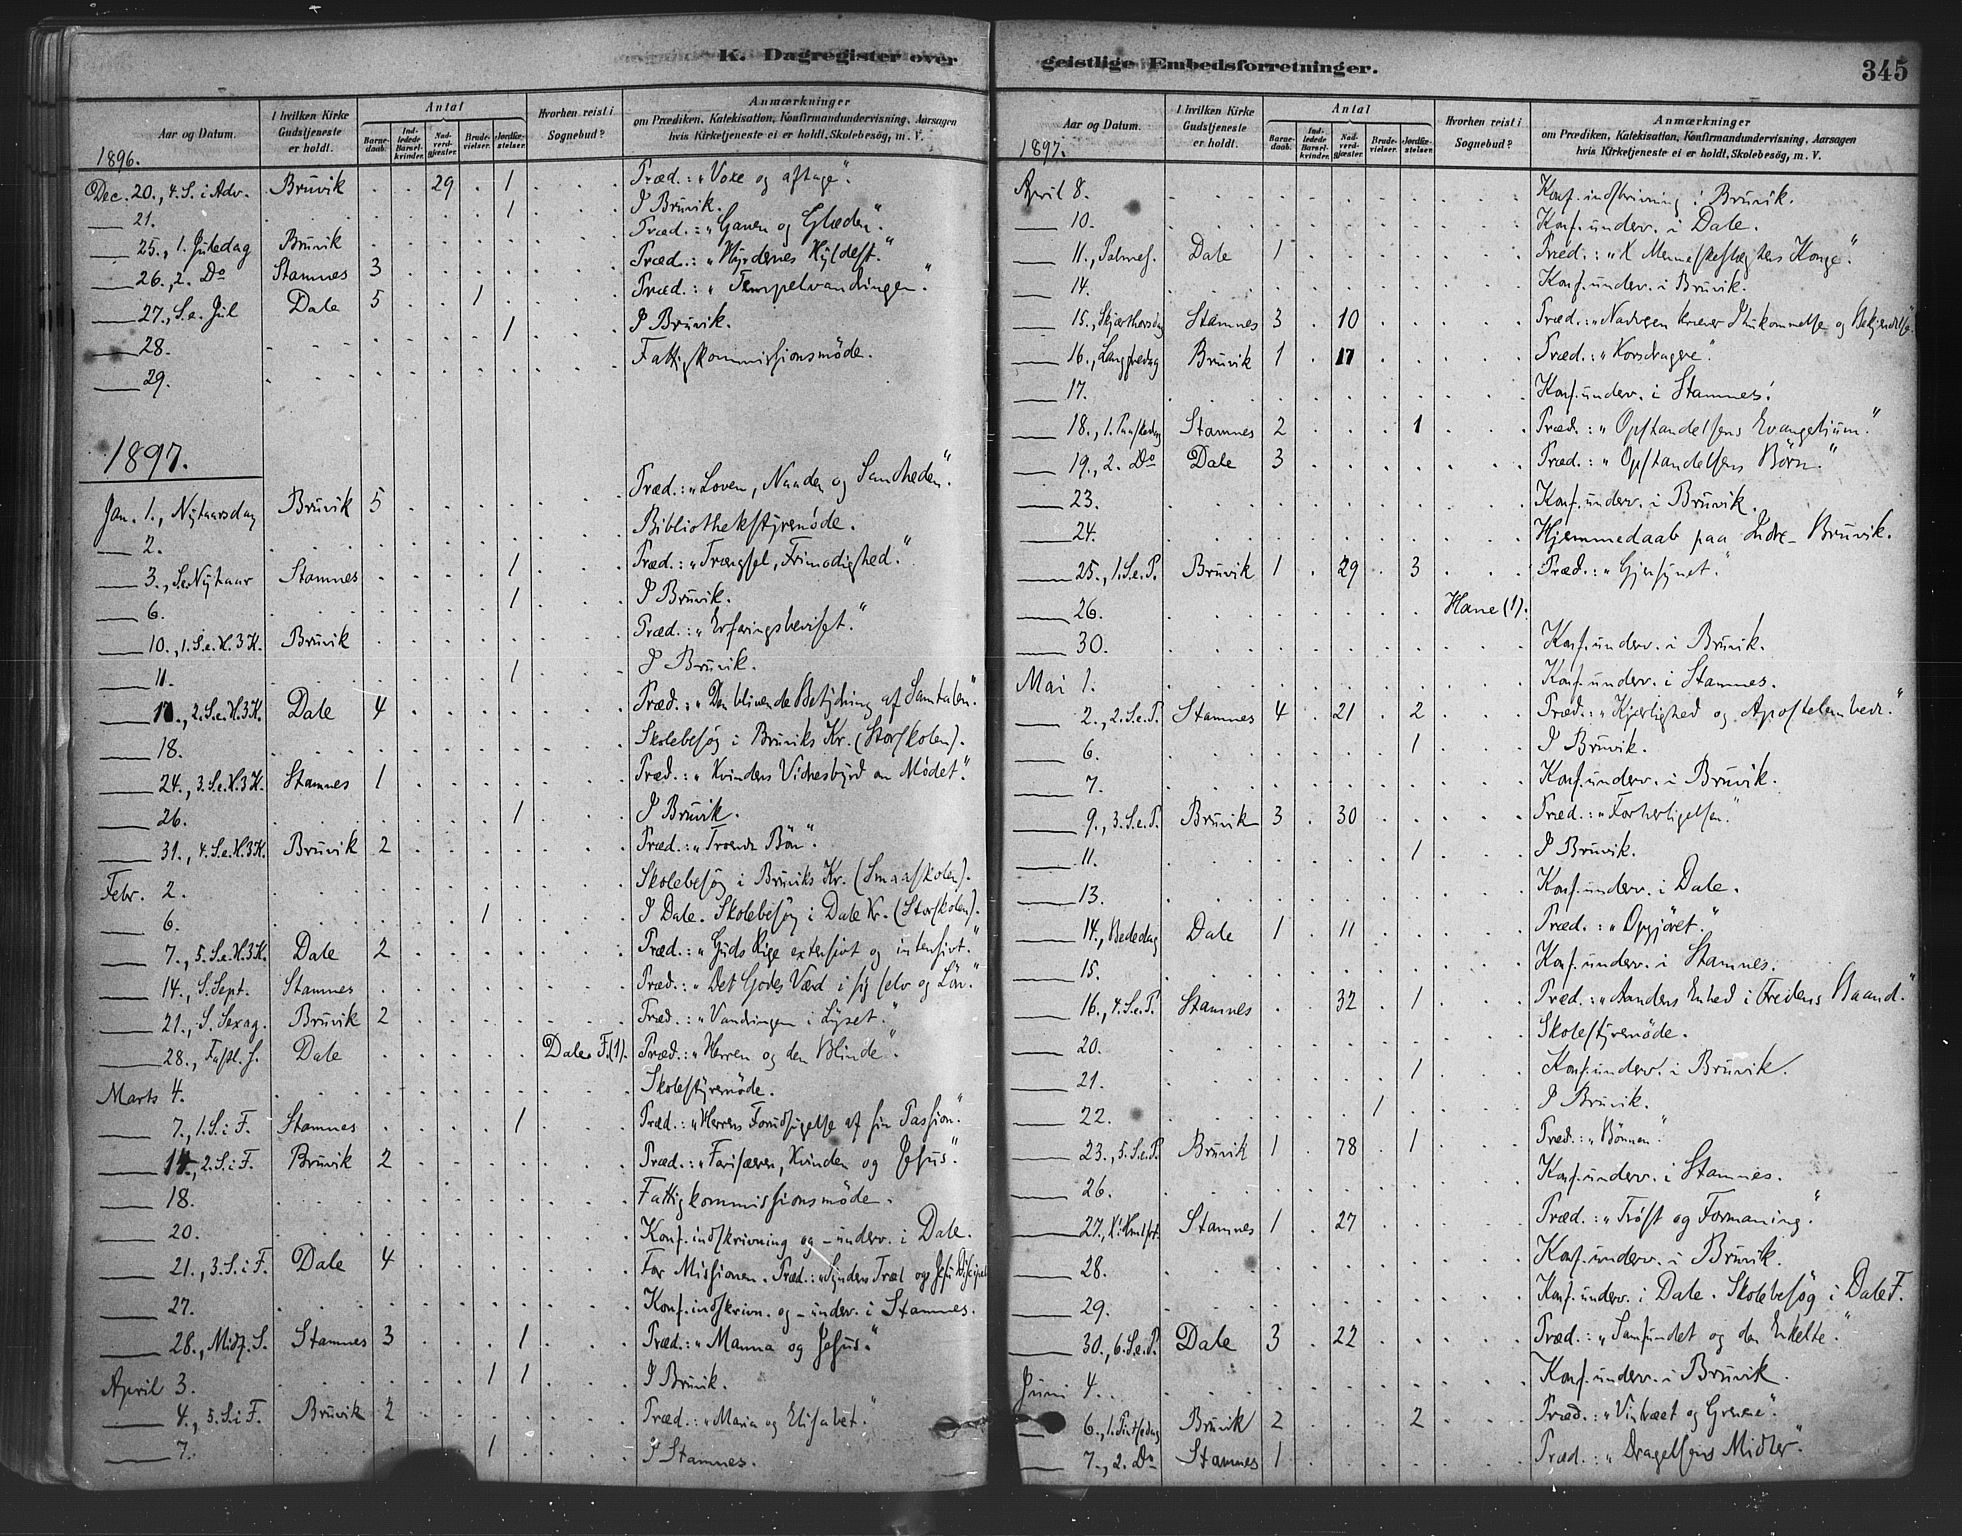 K. Dagregister over geistlige Embedsforretninger. 345
Aar og Datum. I hvilken Kirke Gudstjeneste er holdt. Antal Barnedaab. Indledede Barselkvinder. Nadverdgjæster. Brudevielser. Jordfæstelser. Hvorhen reist i Sognebud? Anmærkninger om Prædiken, Katekisation, Konfirmandundervisning, Aarsagen hvis Kirketjeneste ei er holdt, Skolebesøg, m. V.
1896.
Dec. 20., 4. S. i Adv. Bruvik . . 29 . 1 . . . Præd.: „Voxe og aftage".
21. . . . . . . 1 . . . I Bruvik.
25., 1. Juledag Bruvik . . . . . . . . Præd.: „Gaven og Glæden."
26., 2. Do Stamnes 3 . . . . . . . Præd.: „Hyrdernes Hyldest."
27., S. e. Jul Dale 5 . . 1 . . . . Præd.: „Tempelvandringen."
28. . . . . . . 1 . . . I Bruvik.
29. . . . . . . . . . . Fattigkommissionsmöde.
1897.
Jan. 1., Nytaarsdag Bruvik 5 . . . . . . . Præd.: „Loven, Naaden og Sandheden."
2. . . . . . . . . . . Bibliothekstyremöde.
3., S. e. Nytaar Stamnes . . . . 1 . . . Præd.: „Trængsel, Frimodighed."
6. . . . . . . 1 . . . I Bruvik.
10., 1. S. e. H. 3 K. Bruvik . . . . . . . . Præd.: „Erfaringsbeviset."
11. . . . . . . 1 . . . I Bruvik.
17., 2. S. e. H. 3 K. Dale 4 . . . . . . . Præd.: „Den blivende Betydning af Samtalen."
18. . . . . . . . . . . Skolebesøg i Bruviks Kr. (Storskolen).
24., 3. S. e. H. 3 K. Stamnes 1 . . . . . . . Præd.: „Kvindens Vidnesbyrd om Mödet."
26. . . . . . . 1 . . . I Bruvik.
31., 4. S. e. H. 3 K. Bruvik 2 . . . . . . . Præd.: „Troende Bön".
Febr. 2. . . . . . . . . . . Skolebesøg i Bruviks Kr. (Smaaskolen).
6. . . . . . 1 . . . . I Dale. Skolebesøg i Dale Kr. (Storskolen).
7., 5. S. e. H. 3 K. Dale 2 . . . . . . . Præd.: „Guds Rige extensivt og intensivt."
14., S. Sept. Stamnes . . . . . . . . Præd.: „Det Godes Værd i sig selv og Lön."
21., S. Sexag. Bruvik 2 . . . . . . . Præd.: „Vandringen i Lyset".
28., Fastl. S. Dale . . . . . Dale F. (1). Præd.: „Herren og den Blinde".
Marts 4. . . . . . . . . . . Skolestyremöde.
7., 1. S. i F. Stamnes . . . . 1 . . . Præd.: „Herrens Forudsigelse af sin Passion".
14., 2. S. i F. Bruvik 2 . . . . . . . Præd.: „Farisæeren, Kvinden og Jesus".
18. . . . . . . . . . . Fattigkommissionsmöde.
20. . . . . . . . . . . Konf. indskrivning og –underv. i Dale.
21., 3. S. i F. Dale 4 . . . . . . . For Missionen. Præd.: „Syndens Træl og Jesu Discipel
27. . . . . . . . . . . Konf. indskrivn. og –underv. i Stamnes.
28., Midf. S. Stamnes 3 . . . 1 . . . Præd.: „Manna og Jesus."
April 3. . . . . . 1 1 . . . I Bruvik.
4., 5. S. i F. Bruvik 2 . . . . . . . Præd.: „Maria og Elisabet."
7. . . . . . 1 . . . . I Stamnes.
Aar og Datum. I hvilken Kirke Gudstjeneste er holdt. Antal Barnedaab. Indledede Barselkvinder. Nadverdgjæster. Brudevielser. Jordfæstelser. Hvorhen reist i Sognebud? Anmærkninger om Prædiken, Katekisation, Konfirmandundervisning, Aarsagen hvis Kirketjeneste ei er holdt, Skolebesøg, m. V.
1897.
April 8. . . . . . . . . . . Konf. indskrivning i Bruvik.
10. . . . . . . . . . . Konf. underv. i Dale.
11., Palmes. Dale 1 . . . . . . . Præd.: „K Menneskeslægtens Konge".
14. . . . . . . . . . . Konf. underv. i Bruvik.
15., Skjærthorsdag Stamnes 3 . 10 . . . . . Præd.: „Nadveren kræver Ihukommelse og Bekjendelse."
16., Langfredag Bruvik 1 . 17 . . . . . Præd.: „Korsdragere".
17. . . . . . . . . . . Konf. underv. i Stamnes.
18., 1. Paaskedag Stamnes 2 . . . 1 . . . Præd.: „Opstandelsens Evangelium."
19., 2. Do Dale 3 . . . . . . . Præd.: „Opstandelsens Börn."
23. . . . . . . . . . . Konf. underv. i Bruvik.
24. . . . . . . . . . . Hjemmedaab paa Indre-Bruvik.
25., 1. S. e. P. Bruvik 1 . 29 . 3 . . . Præd.: „Gjensynet."
26. . . . . . . Hane (1).
30. . . . . . . . . . . Konf. underv. i Bruvik.
Mai 1. . . . . . . . . . . Konf. underv. i Stamnes.
2., 2. S. e. P. Stamnes 4 . 21 . 2 . . . Præd.: „Kjærlighed og Apostelembede."
6. . . . . . . 1 . . . I Bruvik.
7. . . . . . . . . . . Konf. underv. i Bruvik.
9., 3. S. e. P. Bruvik 3 . 30 . . . . . Præd.: „Forherligelsen."
11. . . . . . . 1 . . . I Bruvik.
13. . . . . . . . . . . Konf. underv. i Dale.
14., Bededag Dale 1 . 11 . . . . . Præd.: „Opgjöret."
15. . . . . . . . . . . Konf. underv. i Stamnes.
16., 4. S. e. P. Stamnes . . 32 . 1 . . . Præd.: „Aandens Enhed i Fredens Baand."
20. . . . . . . . . . . Skolestyremöde.
21. . . . . . . 1 . . . Konf. underv. i Bruvik.
22. . . . . . 1 . . . . I Bruvik.
23., 5. S. e. P. Bruvik 1 . 78 . 1 . . . Præd.: „Bönnen."
26. . . . . . . . . . . Konf. underv. i Stamnes.
27., K. Hmlfrt. Stamnes 1 . 27 . . . . . Præd.: „Tröst og Formaning."
28. . . . . . . . . . . Konf. underv. i Bruvik.
29. . . . . . . . . . . Konf. underv. i Dale. Skolebesøg i Dale F.
30., 6. S. e. P. Dale 3 . 22 . . . . . Præd.: „Samfundet og den Enkelte."
Juni 4. . . . . . . . . . . Konf. underv. i Bruvik.
6., 1. Pintsedag Bruvik 2 . . . 2 . . . Præd.: „Vintræet og Grenene".
7., 2. Do Stamnes 1 . . . . . . . Præd.: „Dragelsens Midler".